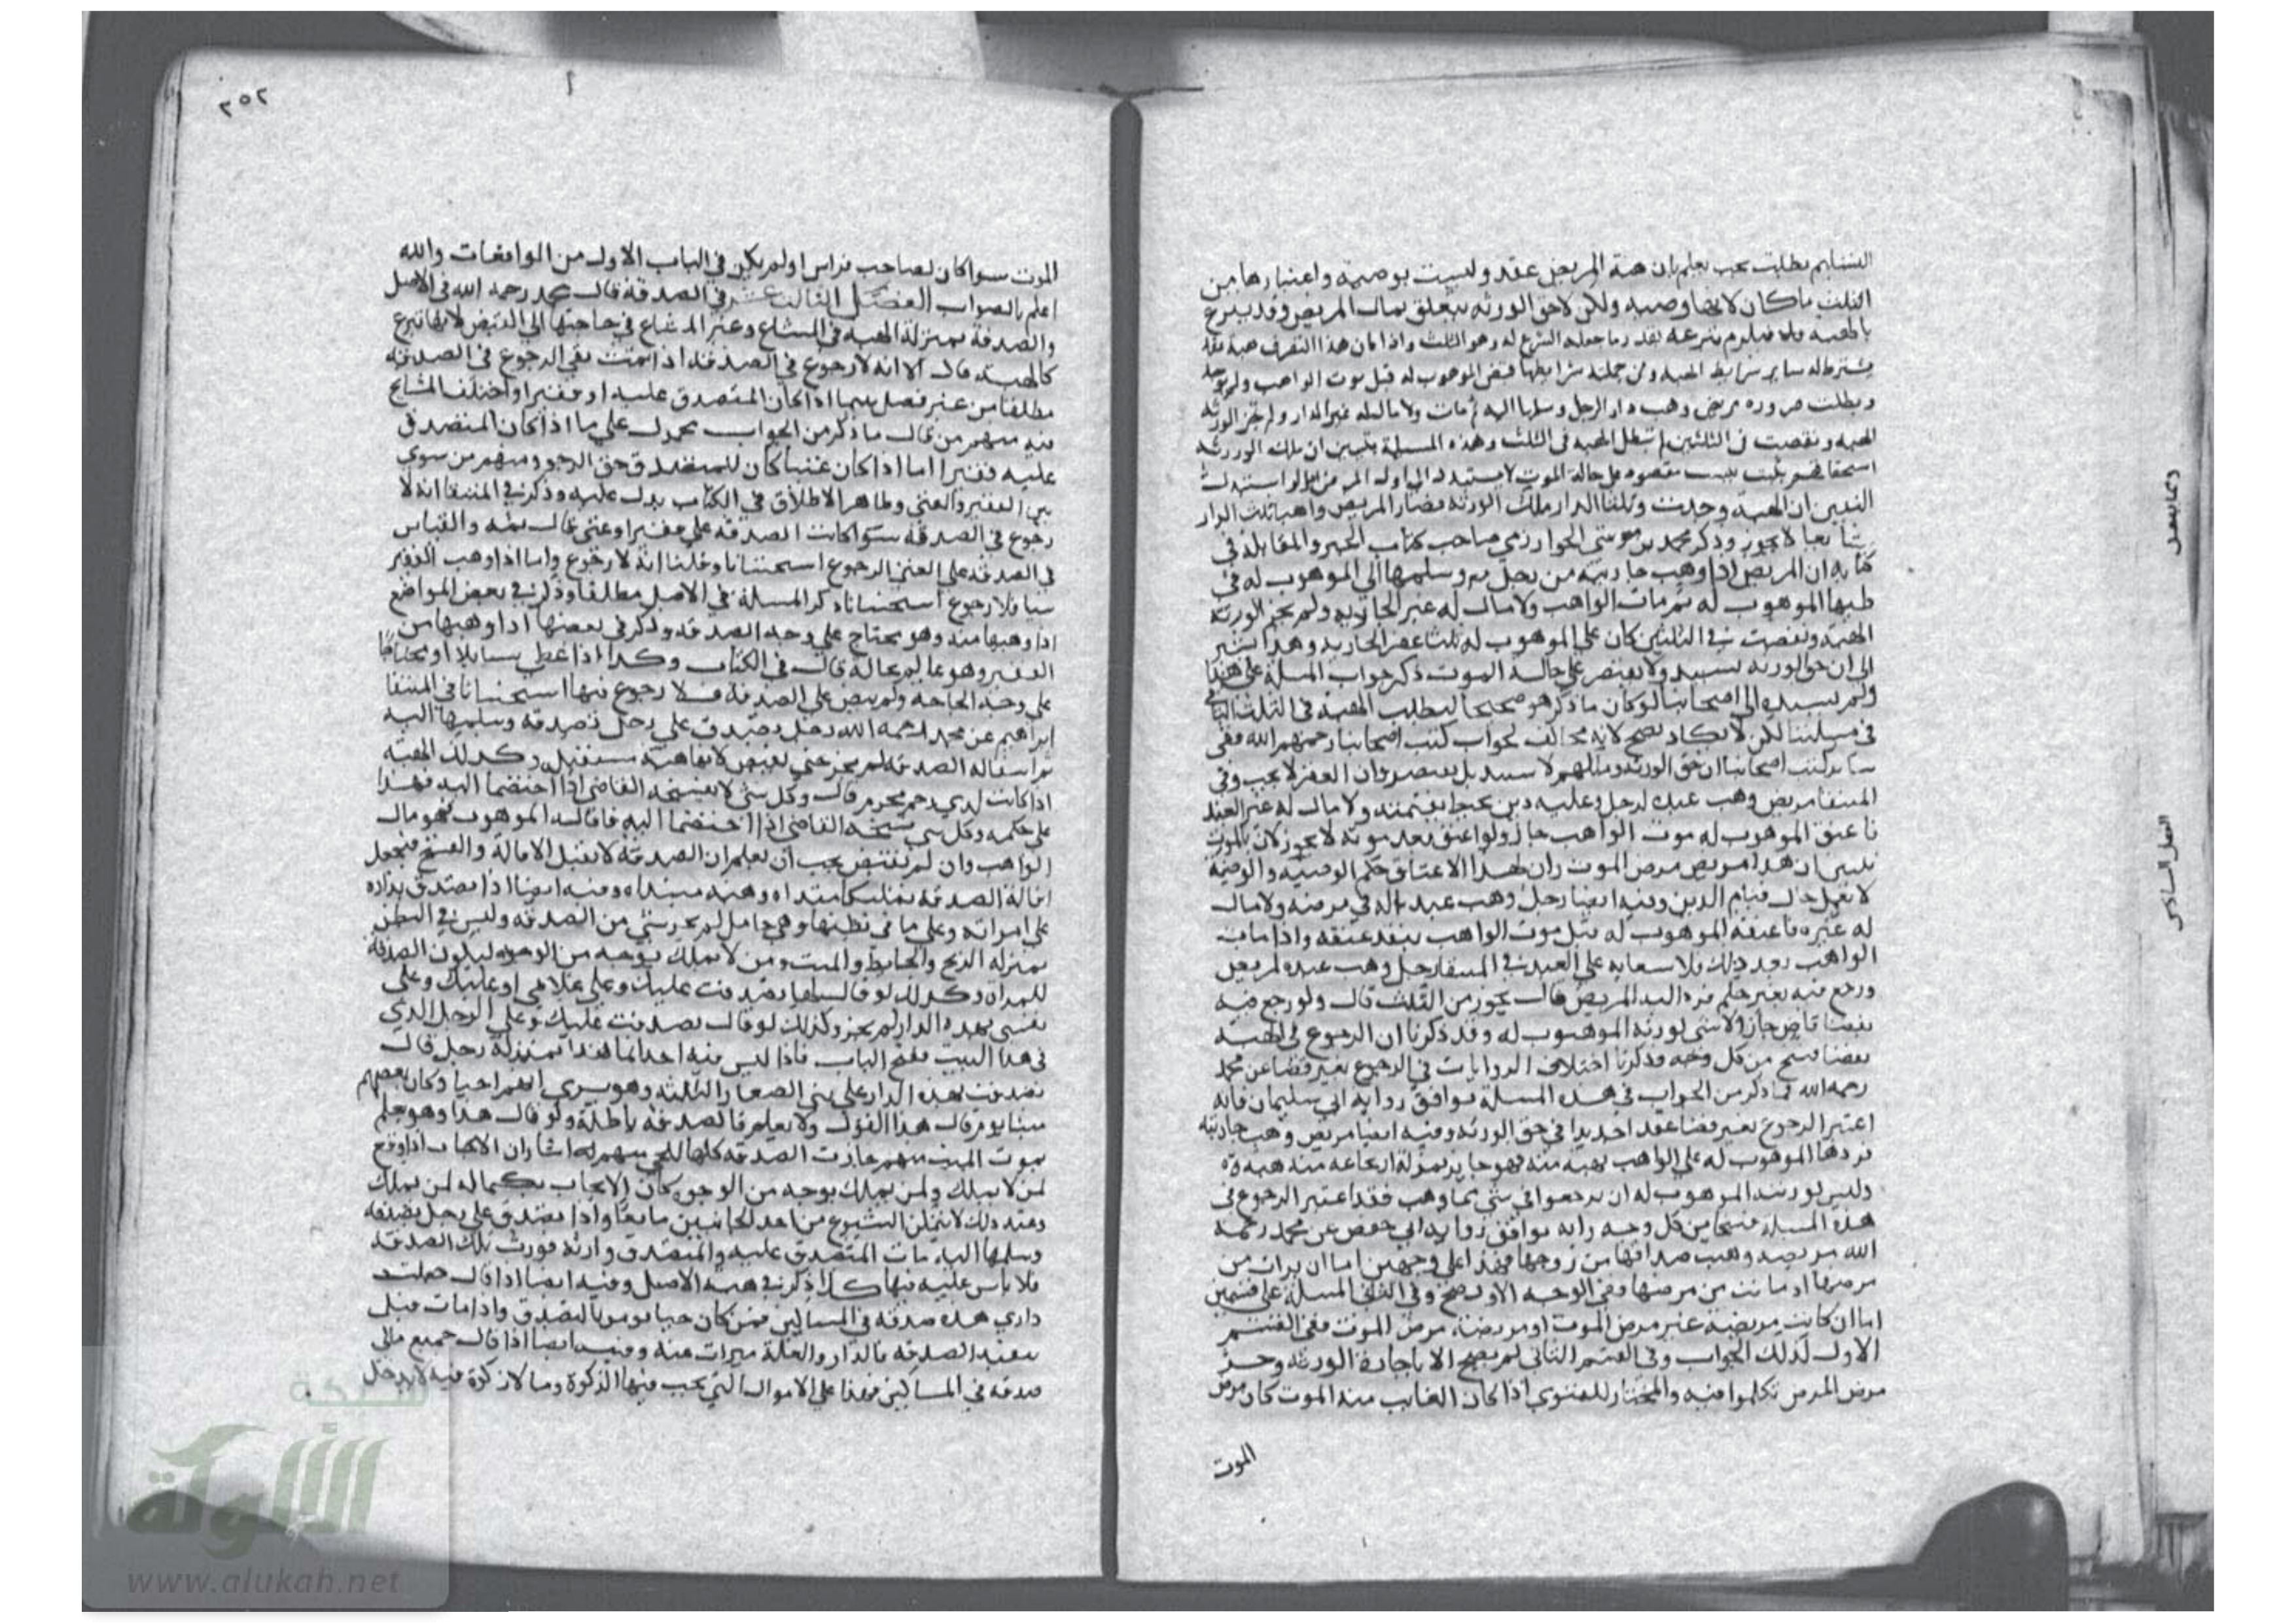 التسليم بطلت يجب يعلم بان هبة المريض عقد وليست بوصية واعتبارها من
الثلث ما كان لانها وصية ولكن لاحق الورثة يتعلق بمال المريض وقد تبرع
بالهبة فلزم تبرعه بقدر ما جعله الشرع له وهو الثلث واذا كان هذا التصرف هبة عقد
يشترط له ساير شرايط الهبة ومن جملة شرايطها قبض الموهوب له قبل موت الواهب ولم يوجد
وبطلت ضرورة مريض وهب دار الرجل وسلمها اليه ثم مات ولا مال له غير الدار ولم تجز الورثة
الهبة ونقضت في الثلثين لم تبطل الهبة في الثلث وهذه المسلة يتبين ان ملك الورثة
التبين ان الهبة وجدت وثلثا الدار ملك الورثة فصار المريض واهبا ثلث الدار
شايعا لا يجوز وذكر محمد بن موسى الخوارزمي صاحب كتاب الجبر والمقابلة في
كتابه ان المريض اذا وهب جاريته من رجل وسلمها الى الموهوب له في
طيها الموهوب له ثم مات الواهب ولا مال له غير الجارية ولم يجز الورثة
الهبة ونقضت في الثلثين كان على الموهوب له ثلثا عقر الجارية وهذا يشير
الى ان حق الورثة يستند ولا يقتصر على حالة الموت ذكر جواب المسلة على هذا
ولم يسنده الى اصحابنا لو كان ما ذكر هو صحيحا لبطلت الهبة في الثلث الباقي
في مسلتنا لكن لا يكاد يصح لانه مخالف لجواب كتب اصحابنا رحمهم الله ففي
ساير كتب اصحابنا ان حق الورثة وملكهم لا يستند بل يقتصر وان العقر لا يجب وفي
المنتقا مريض وهب عبده لرجل وعليه دين يحيط بقيمته ولا مال له غير العبد
فاعتق الموهوب له موت الواهب جاز ولو اعتق بعد موته لا يجوز لان بالموت
تبين ان هذا مريض مرض الموت وان لهذا الاعتاق حكم الوصية والوصية
لا تعمل حال قيام الدين وفيه ايضا رجل وهب عبد اله في مرضه ولا مال
له غيره فاعتقه الموهوب له قبل موت الواهب ينفذ عتقه واذا مات
الواهب بعد ذلك فلا سعاية على العبد في المنتقا رجل وهب عبده لمريض
ورجع فيه بغير حكم فرده اليه المريض قال يجوز من الثلث قال ولو رجع فيه
بقضا قاض جاز ولا شي لورثة الموهوب له وقد ذكرنا ان الرجوع في الهبة
بقضا فسخ من كل وجه وذكرنا اختلاف الروايات في الرجوع بغير قضا عن محمد
رحمه الله فما ذكر من الجواب في هذه المسلة يوافق رواية ابي سليمان فانه
اعتبر الرجوع بغير قضا عقدا جديدا في حق الورثة وفيه ايضا مريض وهب جاريته
فردها الموهوب له على الواهب بهبة منه فهو جايز بمنزلة ارجاعه منه هبة
وليس لورثة الموهوب له ان يرجعوا في شي مما وهب فقد اعتبر الرجوع في
هذه المسلة فسخا من كل وجه وانه يوافق رواية ابي حفص عن محمد رحمه
الله مريضة وهبت صداقها من زوجها فهذا على وجهين اما ان برات من
مرضها او ماتت من مرضها وفي الوجه الاول صح وفي الثاني المسلة على قسمين
اما ان كانت مريضة غير مرض الموت او مريضة مرض الموت ففي القسم
الاول كذلك الجواب وفي القسم الثاني لم يصح الا باجازة الورثة وحد
مرض المرض تكلموا فيه والمختار للفتوى اذا كان الغالب منه الموت كان مرض
الموت
٢٥٢
الموت سوا كان لصاحب فراس او لم يكن في الباب الاول من الواقعات والله
اعلم بالصواب الفصل الثالث عشر في الصدقة قال محمد رحمه الله في الاصل
والصدقة بمنزلة الهبة في المشاع وغير المشاع في حاجتها الى القبض لانها تبرع
كالهبة قال الا انه لا رجوع في الصدقة اذا تمت بقي الرجوع في الصدقة
مطلقا من غير فصل بينما اذا كان المتصدق عليه او فقيرا واختلف المشايخ
فيه منهم من قال ما ذكر من الجواب محمول على ما اذا كان المتصدق
عليه فقيرا اما اذا كان غنيا كان للمتصدق حق الرجو ومنهم من سوى
بين الفقير والغني وظاهر الاطلاق في الكتاب يدل عليه وذكر في المنتقا انه لا
رجوع في الصدقة سوا كانت الصدقة على فقير او غني قال ثمه والقياس
في الصدقة على الغني الرجوع استحسانا وقلنا انه لا رجوع واما اذا وهب الفقير
شيا فلا رجوع استحسانا ذكر المسلة في الاصل مطلقا وذكر في بعض المواضع
اذا وهبها منه وهو محتاج على وجه الصدقة وذكر في بعضها اذا وهبها من
الفقير وهو عالم بحاله قال في الكتاب وكذا اذا اعطى سايلا او محتاجا
على وجه الحاجة ولم ينص على الصدقة فلا رجوع فيها استحسانا في المنتقا
ابراهيم عن محمد رحمه الله رجل تصدق على رجل بصدقة وسلمها اليه
ثم استقاله الصدقة لم يجز حتى يقبض لانها هبة مستقبلة وكذلك الهبة
اذا كانت لذي رحم محرم قال وكل شي لا يفسخه القاضي اذا اختصما اليه فهذا
على حكمه وكل شي يفسخه القاضي اذا اختصما اليه فاقاله الموهوب فهو مال
الواهب وان لم يقبض يجب ان يعلم ان الصدقة لا تقبل الاقالة والفسخ فيجعل
اقالة الصدقة تمليكا مبتداه وهبة مبتداه وفيه ايضا اذا تصدق بداره
على امراته وعلى ما في بطنها وهي حامل لم يجز شي من الصدقة وليس في البطن
بمنزلة الريح والحايط والميت ومن لا يملك بوجه من الوجوه ليكون الصدقة
للمراة وكذلك لو قال لها تصدقت عليك وعلى غلامي او عليك وعلى
نفسي بهذه الدار لم يجز وكذلك لو قال تصدقت عليك وعلى الرجل الذي
في هذا البيت ففتح الباب فاذا ليس فيه احد انما هذا بمنزلة رجل قال
تصدقت بهذه الدار على بني الصغار الثلثة وهو يرى انهم احيا وكان بعضهم
ميتا يوم قال هذا القول ولا يعلم فالصدقة باطلة ولو قال هذا وهو يعلم
بموت الميت منهم جازت الصدقة كلها للحي منهم لما اشار ان الايجاب اذا وقع
لمن لا يملك ولمن يملك بوجه من الوجوه كان الايجاب بكماله لمن يملك
وعند ذلك لا يتمكن الشيوع من احد الجانبين مانعا واذا تصدق على رجل بصدقة
وسلمها اليه مات المتصدق عليه والمتصدق وارثه فورث تلك الصدقة
فلا باس عليه فيها كذا ذكر في هبة الاصل وفيه ايضا اذا قال جعلت
داري هذه صدقة في المساكين فمن كان حيا يومر بالتصدق واذا مات قبل
تنفيذ الصدقة فالدار والغلة ميراث عنه وفيه ايضا اذا قال جميع مالي
صدقة في المساكين فهذا على الاموال التي يجب فيها الزكوة وما لا زكوة فيه لا يدخل
شبكة
الألوكة
www.alukah.net